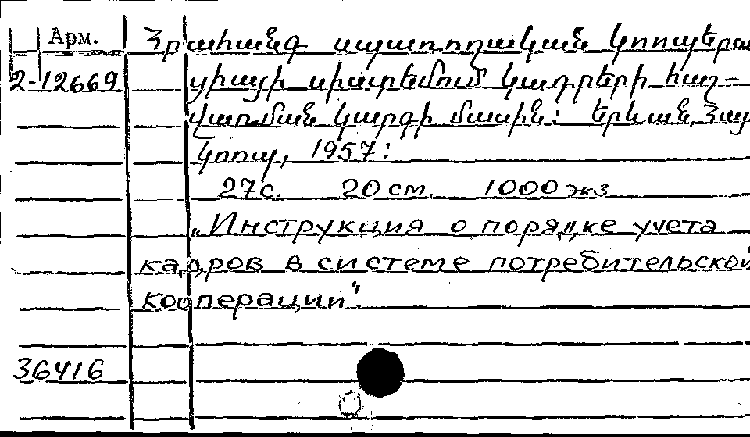 Арм.
Հրահանգ սպառողական կոոպերա
2-12669
ցիայի սիստեմում կադրերի հաշ-
վառման կարգի մասին: Երևան, Հայ
կոոպ, 1957:
27с. 20 см. 1000 экз
„Инструкция о порядке учета
кадров в системе потребительской
кооперации".
36416